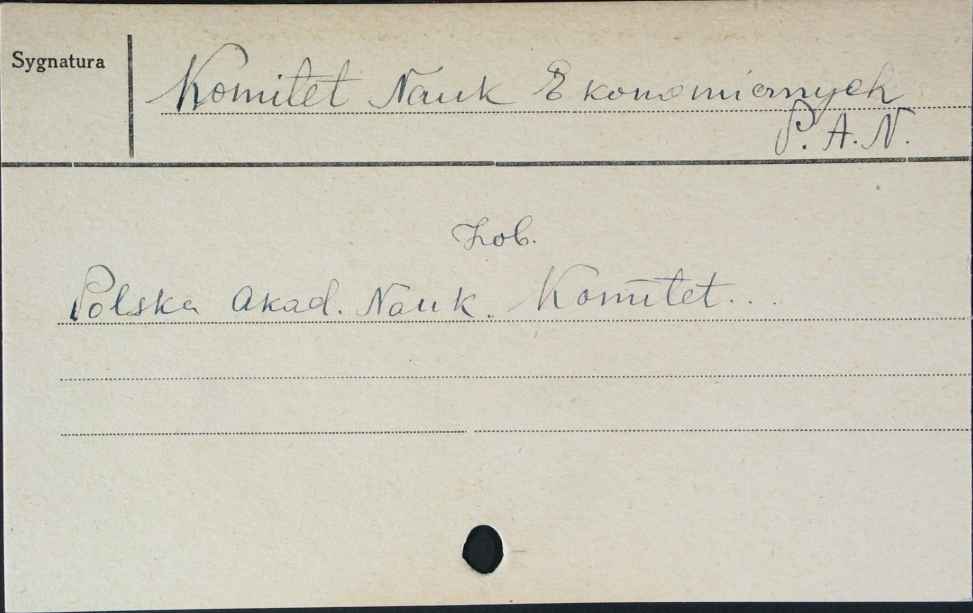 Sygnatura
Komitet Nauk Ekonomicznych
P. A. N.
Zob.
Polska Akad. Nauk. Komitet...